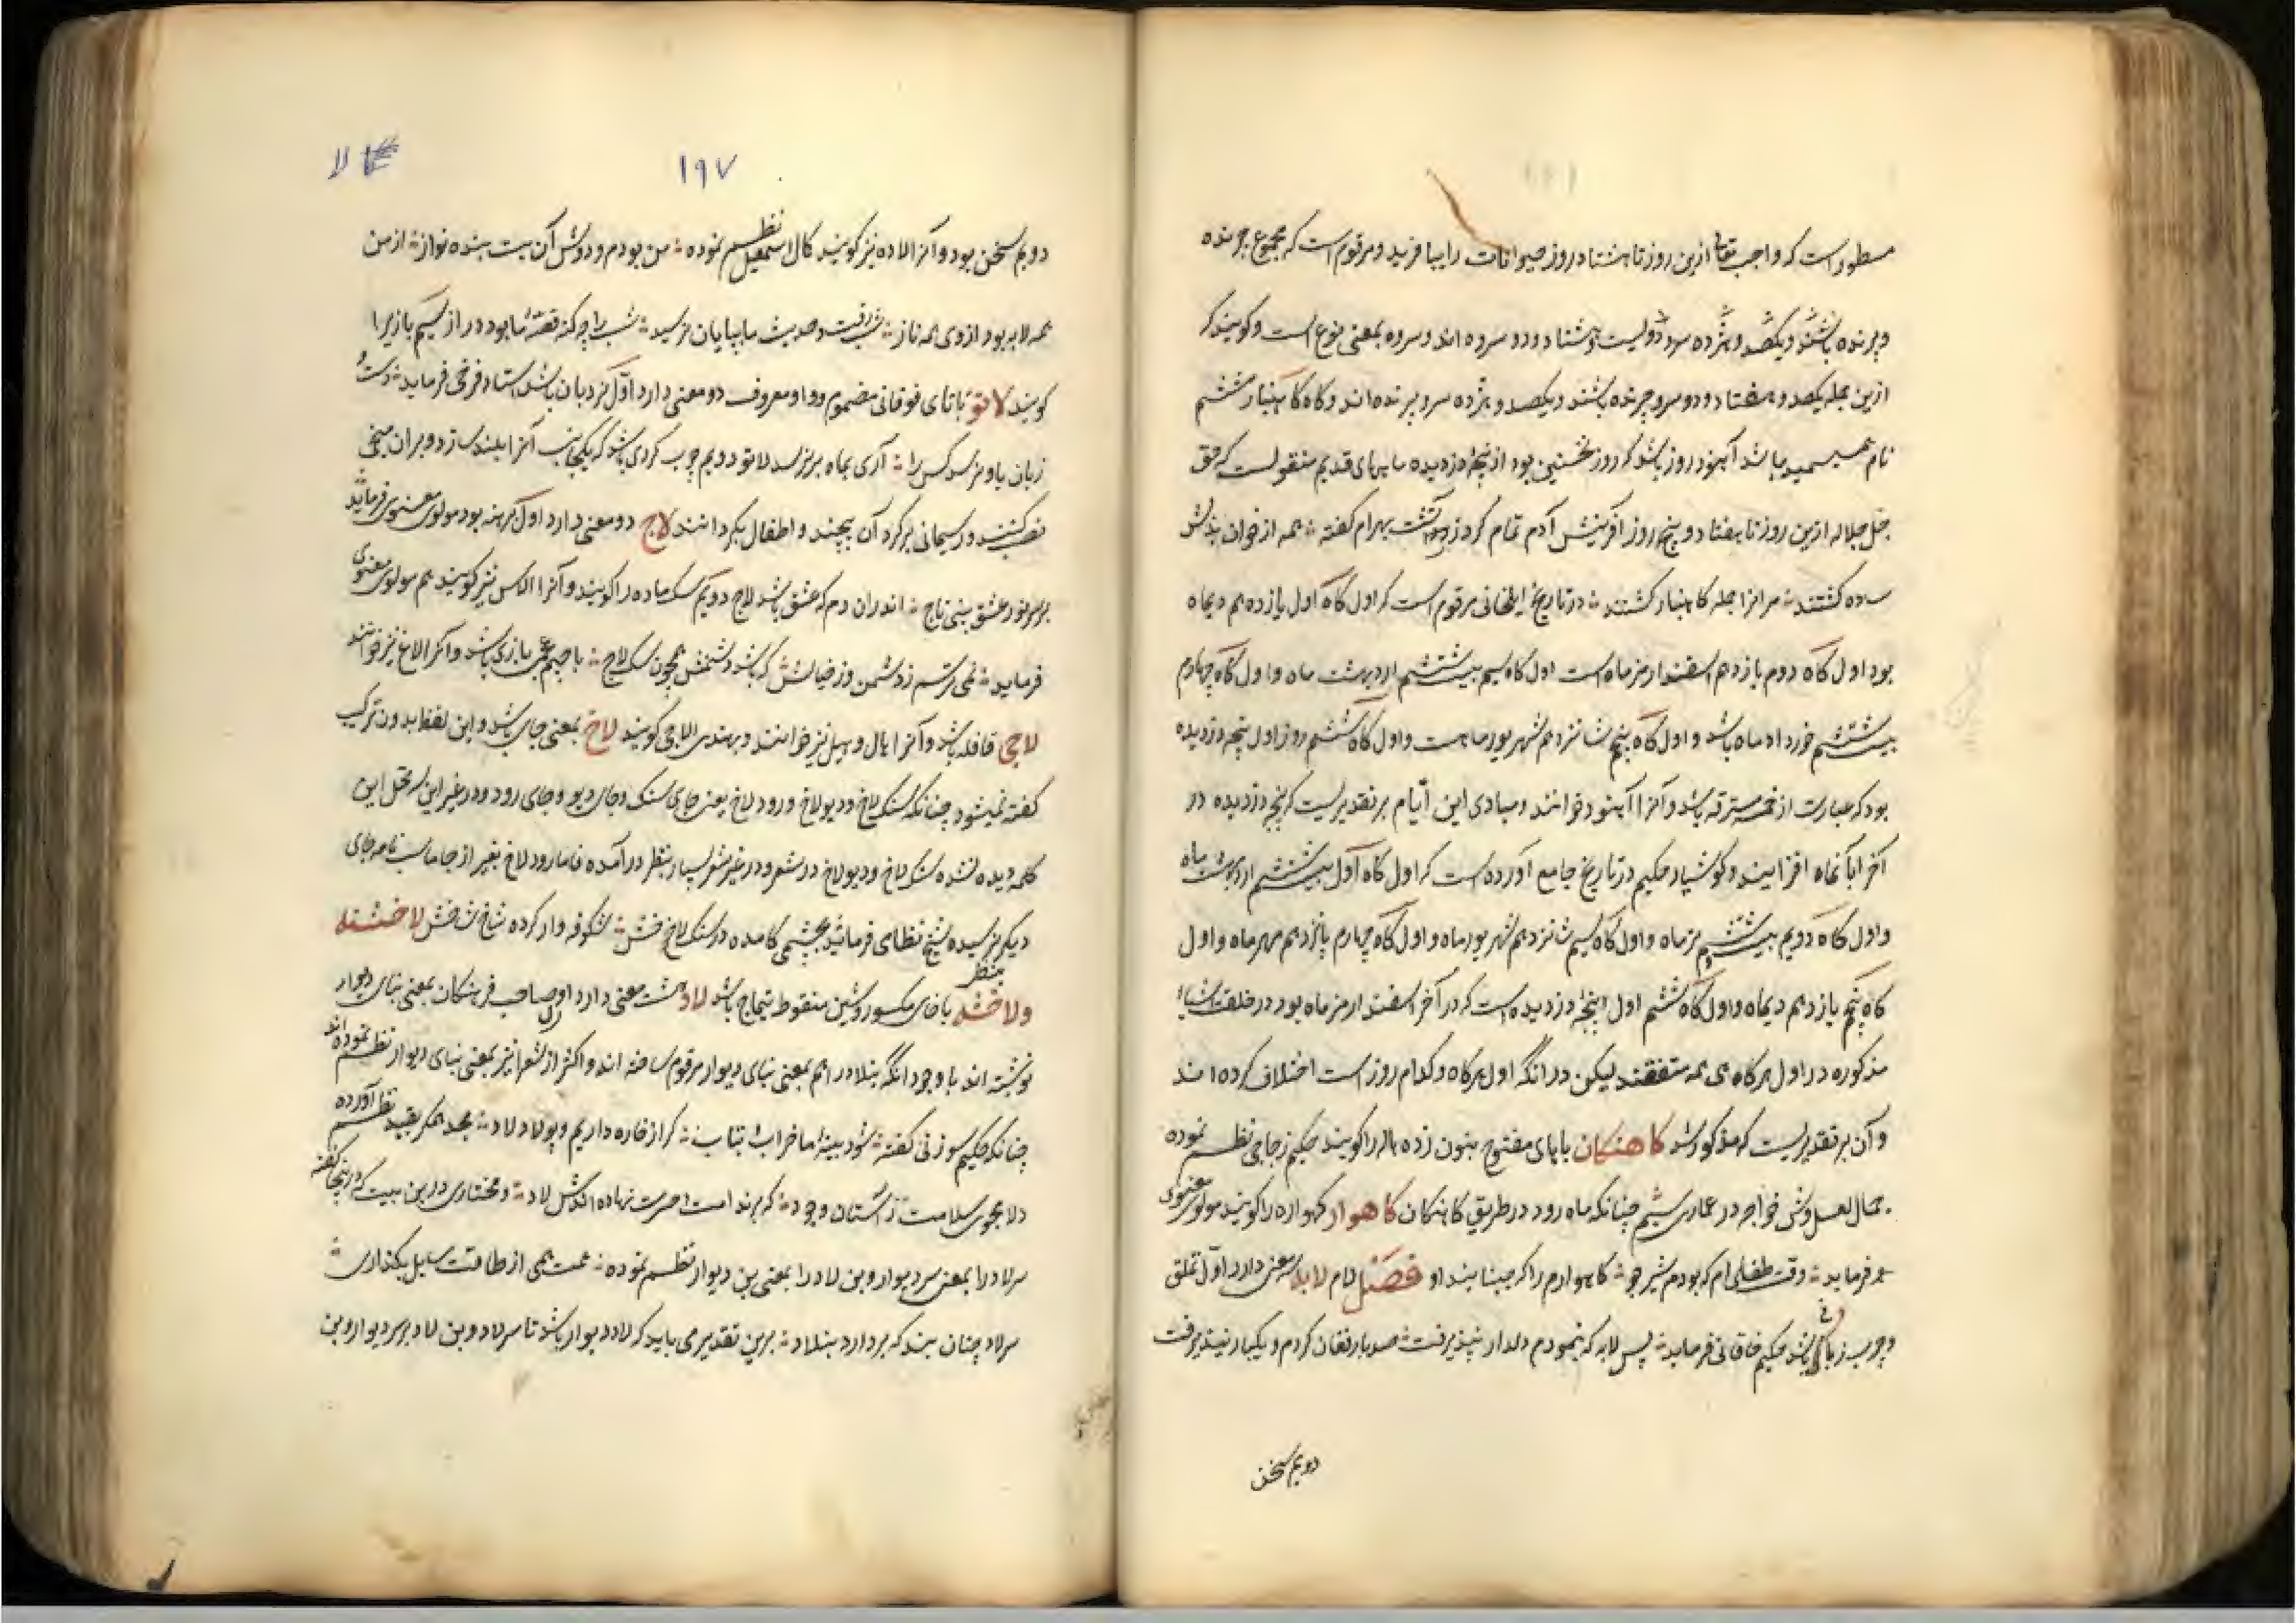 مسطور است که واجب تعالی ازین روز تا هشتاد روز حیوانات را بیافرید و مرقوم است که مجموع چرنده
و پرنده باشند و یکصد و هژده سرده دویست و هشتاد و دو سرده اند و سرده بمعنی نوع است و کویند که
ازین جمله یکصد و هفتاد و دو سرو چرنده باشند و یکصد و هژده سرو پرنده اند و کاه کاهنبار ششم
نام باشد آهنود روز باشد که روز نخستین بود از پنجهٔ دزدیده ماههای قدیم منقولست که حق
جل جلاله ازین روز تا هفتاد و پنج روز آفرینش آدم تمام کرد زردشت بهرام گفته همه از خوان
ساده کشتند مر انرا جمله کاهنبار کشتند در تاریخ ایلخانی مرقوم است که اول کاه اول یازدهم دیماه
بود اول کاه دوم یازدهم اسفندارمز ماه است اول کاه سیم بیست ششم اردیبهشت ماه و اول کاه چهارم
بیست ششم خورداد ماه باشد و اول کاه پنجم شانزدهم شهریور ماهست و اول کاه ششم روز اول پنجه دزدیده
بود که عبارت از خمسه مسترقه باشد و آنرا آهنود خوانند و مبادی این ایام بر تقدیریست که پنجه دزدیده در
آخر آبانماه افزایند و کوشیار حکیم در تاریخ جامع آورده است که اول کاه اول بیست ششم اردیبهشت ماه
و اول کاه دویم بیست ششم تیرماه و اول کاه سیم شانزدهم شهریور ماه و اول کاه چهارم پانزدهم مهر ماه و اول
کاه پنجم یازدهم دیماه و اول کاه ششم اول پنجهٔ دزدیده است که در آخر اسفندارمز ماه بود در خلقت اشیاء
مذکوره در اول هر کاهی همه متفقند لیکن در انکه اول هر کاه و کدام روز است اختلاف کرده اند
و آن بر تقدیریست که مذکور شد کاهنکان با های مفتوح بنون زده هاله را کویند حکیم زجاجی نظم نموده
جمال لعل وش خواجه در عماری سیم چنانکه ماه رود در طریق کاهنکان کاهوار کهواره را کویند مولوی معنوی
فرماید وقت طفلی ام که بودم شیر جو کاهوارم را که جنبانید او فصل لام لابه سه معنی دارد اول تملق
و چرب زبانی باشد حکیم خاقانی فرماید پس لابه که بنمودم دلدار نپذیرفت صد بار فغان کردم و یکبار نپذیرفت
دویم سخن
۱۹۷
لا
دویم سخن بود و آنرا لاده نیز کویند کمال اسمعیل نظم نموده من بودم و دوش آن بت بنده نواز از من
همه لابه بود از وی همه ناز شب رفت و حدیث ما بپایان نرسید شب را چه کنه قصهٔ ما بود دراز سیم بازیرا
کویند لاتو با تای فوقانی مضموم و واو معروف دو معنی دارد اول نردبان باشد استاد فرخی فرماید
زبان باو نرسد کس را آری بماه بر نرسد لاتو دویم چوب کردی باشد که یکجانب آنرا بلند سازد و بران میخی
نصب کنند و ریسمانی بر کرد آن پیچند و اطفال بکردانند لاج دو معنی دارد اول برهنه بود مولوی معنوی فرماید
بر سر نور عشق بینی تاج اندران دم که عشق باشد لاج دویم سک ماده را کویند و آنرا لاس نیز کویند هم مولوی معنوی
فرماید نمی ترسم ز دشمن وز خیالش که باشد دشمنش همچون سک لاج با جیم عجمی بازی باشد و آنرا لاغ نیز خوانند
لاچی قاقله باشد و آنرا هال و هیل نیز خوانند و بهندی الاچی کویند لاخ بمعنی جای باشد و این لفظ بدون ترکیب
کفته نمیشود چنانکه سنک لاخ و دیو لاخ و رود لاخ یعنی جای سنک و جای دیو و جای رود و در غیر این سه محل این
کلمه دیده نشده سنک لاخ و دیو لاخ در شعر و در غیر شعر بسیار بنظر در آمده فاما رود لاخ بغیر از جاماسب نامه جای
دیکر نرسیده شیخ نظامی فرماید بچشمی کامده در سنک لاخش شکوفه وار کرده شاخ شاخش لاخشته
بنظر
ولاخشه با خای مکسور و شین منقوط تتماج باشد لاد هشت معنی دارد اول صاحب فرهنکان بمعنی بنای دیوار
نوشته اند با وجود انکه بنلاد را هم بمعنی بنای دیوار مرقوم ساخته اند و اکثر از شعرا نیز بمعنی بنای دیوار نظم نموده اند
چنانکه حکیم سوزنی کفته شود بینهٔ ما خراب بتاب که از خاره داریم و پولاد لاد مجد همکر بقید نظم آورده
دلا مجوی سلامت ز آستان وجود که بر ندامت و حسرت نهاده اندش لاد و مختاری درین بیت که در اینجا کفته
سر لاد را بمعنی سر دیوار و بن لاد را بمعنی بن دیوار نظم نموده همت همی از طاقت سایل بکذاری
سر لاد چنان بند که بردارد بنلاد برین تقدیر می باید که لاد دیوار باشد تا سر لاد و بن لاد بر سر دیوار و بن